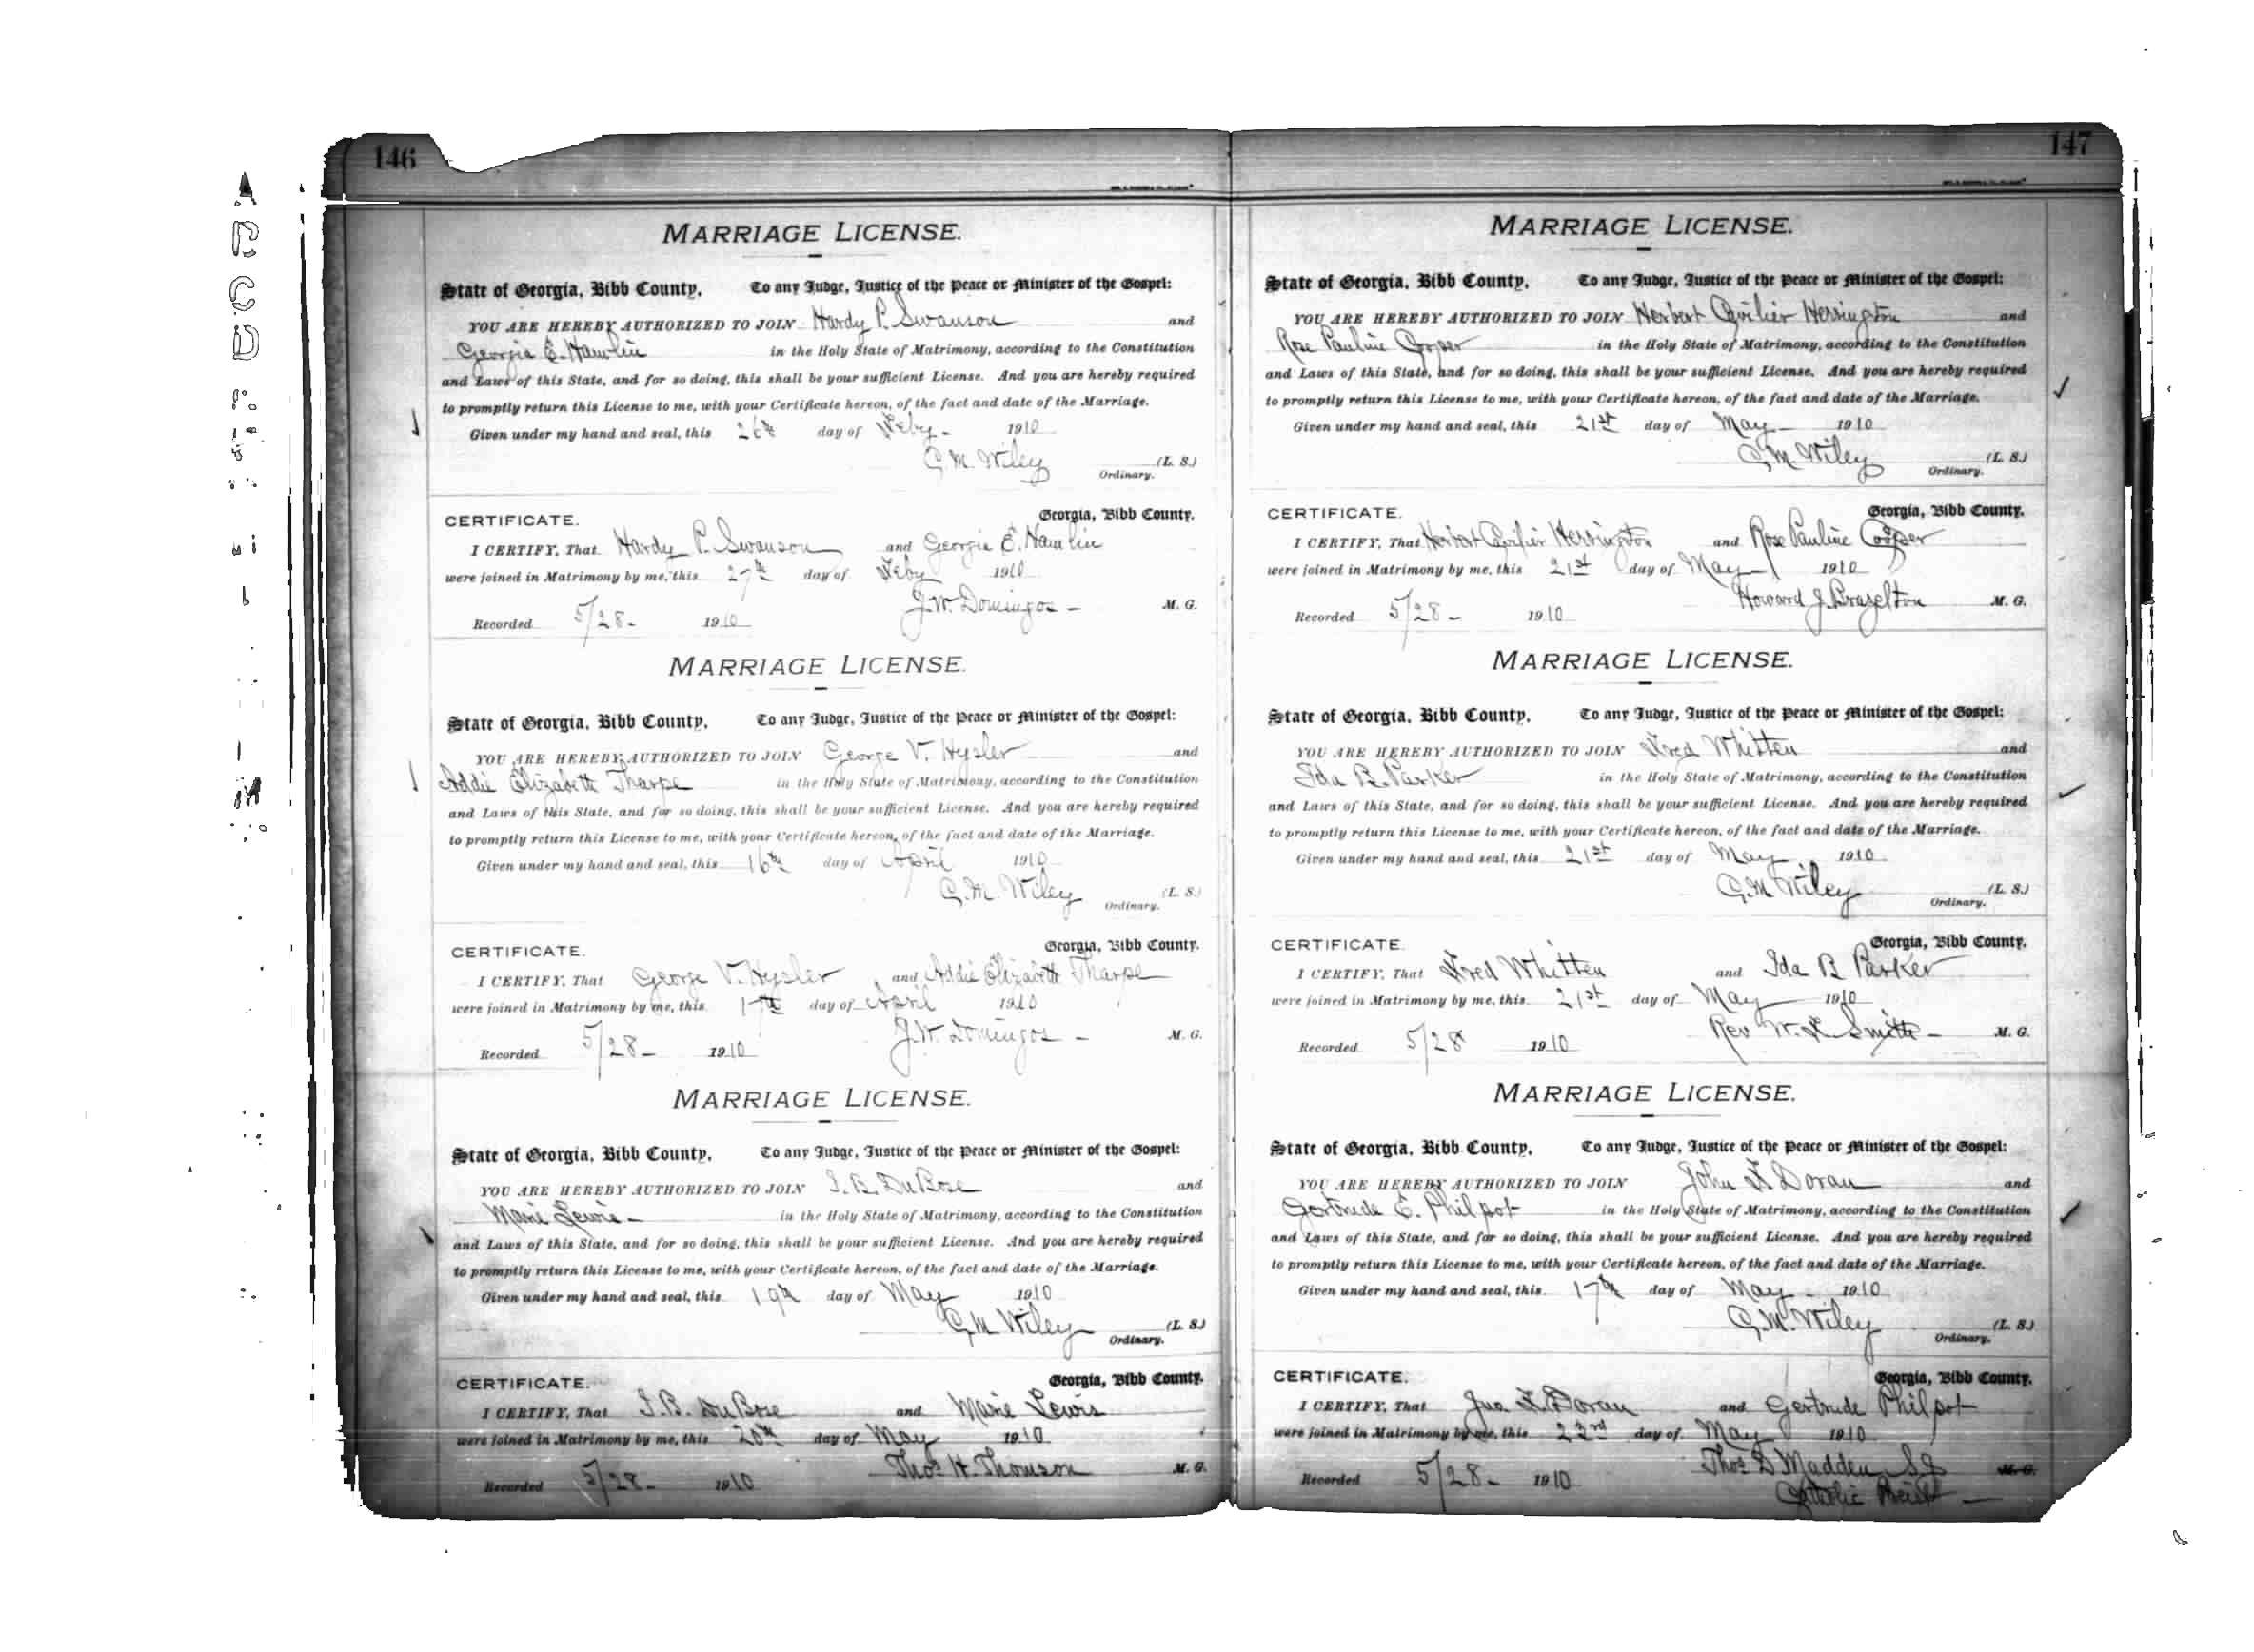 146
MARRIAGE LICENSE.
State of Georgia, Bibb County, To any Judge, Justice of the Peace or Minister of the Gospel:
YOU ARE HEREBY AUTHORIZED TO JOIN Hardy P. Swanson and
Georgia E. Hamlin in the Holy State of Matrimony, according to the Constitution
and Laws of this State, and for so doing, this shall be your sufficient License. And you are hereby required
to promptly return this License to me, with your Certificate hereon, of the fact and date of the Marriage.
Given under my hand and seal, this 26th day of Feby 1910
C. M. Wiley (L. S.)
Ordinary.
CERTIFICATE. Georgia, Bibb County.
I CERTIFY, That Hardy P. Swanson and Georgia E. Hamlin
were joined in Matrimony by me, this 27th day of Feby 1910
J. W. Domingos - M. G.
Recorded 5/28 - 1910
MARRIAGE LICENSE.
State of Georgia, Bibb County, To any Judge, Justice of the Peace or Minister of the Gospel:
YOU ARE HEREBY AUTHORIZED TO JOIN George V. Hysler and
Addie Elizabeth Tharpe in the Holy State of Matrimony, according to the Constitution
and Laws of this State, and for so doing, this shall be your sufficient License. And you are hereby required
to promptly return this License to me, with your Certificate hereon, of the fact and date of the Marriage.
Given under my hand and seal, this 16th day of April 1910
C. M. Wiley (L. S.)
Ordinary.
CERTIFICATE. Georgia, Bibb County.
I CERTIFY, That George V. Hysler and Addie Elizabeth Tharpe
were joined in Matrimony by me, this 17th day of April 1910
J. W. Domingos - M. G.
Recorded 5/28 - 1910
MARRIAGE LICENSE.
State of Georgia, Bibb County, To any Judge, Justice of the Peace or Minister of the Gospel:
YOU ARE HEREBY AUTHORIZED TO JOIN I. B. DuBose and
Marie Lewis - in the Holy State of Matrimony, according to the Constitution
and Laws of this State, and for so doing, this shall be your sufficient License. And you are hereby required
to promptly return this License to me, with your Certificate hereon, of the fact and date of the Marriage.
Given under my hand and seal, this 19th day of May 1910
C. M. Wiley (L. S.)
Ordinary.
CERTIFICATE. Georgia, Bibb County.
I CERTIFY, That I. B. DuBose and Marie Lewis
were joined in Matrimony by me, this 20th day of May 1910
Thos H. Thomson M. G.
Recorded 5/28 - 1910
147
MARRIAGE LICENSE.
State of Georgia, Bibb County, To any Judge, Justice of the Peace or Minister of the Gospel:
YOU ARE HEREBY AUTHORIZED TO JOIN Herbert Herrington and
Rose Pauline Cooper in the Holy State of Matrimony, according to the Constitution
and Laws of this State, and for so doing, this shall be your sufficient License. And you are hereby required
to promptly return this License to me, with your Certificate hereon, of the fact and date of the Marriage.
Given under my hand and seal, this 21st day of May 1910
C. M. Wiley (L. S.)
Ordinary.
CERTIFICATE. Georgia, Bibb County.
I CERTIFY, That Herbert Herrington and Rose Pauline Cooper
were joined in Matrimony by me, this 21st day of May 1910
Howard J. Brazelton M. G.
Recorded 5/28 - 1910
MARRIAGE LICENSE.
State of Georgia, Bibb County, To any Judge, Justice of the Peace or Minister of the Gospel:
YOU ARE HEREBY AUTHORIZED TO JOIN Fred Whitten and
Ida B Parker in the Holy State of Matrimony, according to the Constitution
and Laws of this State, and for so doing, this shall be your sufficient License. And you are hereby required
to promptly return this License to me, with your Certificate hereon, of the fact and date of the Marriage.
Given under my hand and seal, this 21st day of May 1910
C. M. Wiley (L. S.)
Ordinary.
CERTIFICATE. Georgia, Bibb County.
I CERTIFY, That Fred Whitten and Ida B Parker
were joined in Matrimony by me, this 21st day of May 1910
Rev W. Smith - M. G.
Recorded 5/28 1910
MARRIAGE LICENSE.
State of Georgia, Bibb County, To any Judge, Justice of the Peace or Minister of the Gospel:
YOU ARE HEREBY AUTHORIZED TO JOIN John F Doran and
Gertrude E. Philpot in the Holy State of Matrimony, according to the Constitution
and Laws of this State, and for so doing, this shall be your sufficient License. And you are hereby required
to promptly return this License to me, with your Certificate hereon, of the fact and date of the Marriage.
Given under my hand and seal, this 17th day of May 1910
C. M. Wiley (L. S.)
Ordinary.
CERTIFICATE. Georgia, Bibb County.
I CERTIFY, That Jno. F. Doran and Gertrude Philpot
were joined in Matrimony by me, this 23rd day of May 1910
Thos D Madden S J M. G.
Recorded 5/28 - 1910
Catholic Priest -